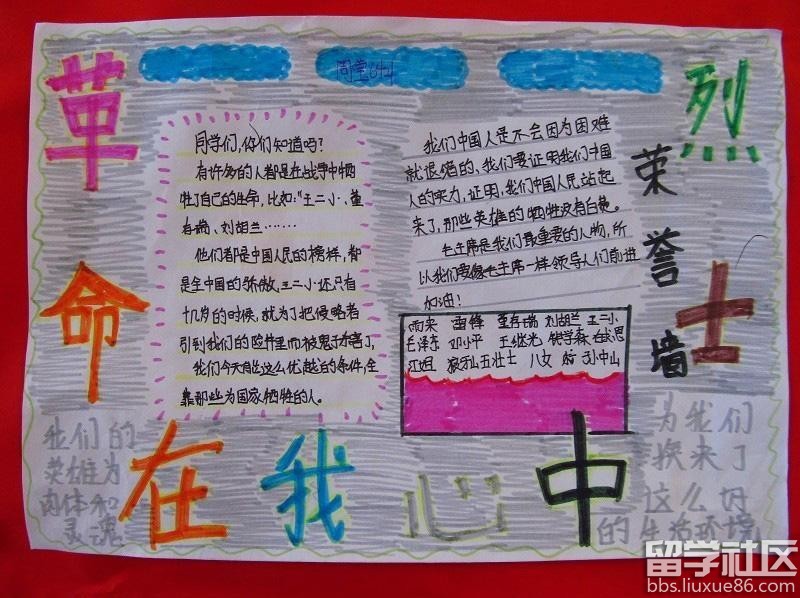 革
命
烈
士
在我心中
周莹制
同学们，你们知道吗？
有许多的人都是在战争中牺
牲了自己的生命，比如：“王二小、董
存瑞、刘胡兰……
他们都是中国人民的榜样，都
是全中国的骄傲，王二小还只有
十几岁的时候，就为了把侵略者
引到我们的陷井里而被鬼子杀害了，
我们今天能这么优越的条件，全
靠那些为国家牺牲的人。
我们中国人是不会因为困难
就退缩的，我们要证明我们中国
人的实力，证明，我们中国人民站起
来了，那些英雄的牺牲没有白费。
毛主席是我们最重要的人物，所
以我们要像毛主席一样领导人们前进
加油！
荣誉墙
雨来 雷锋 董存瑞 刘胡兰 王二小
毛泽东 邓小平 王继光 钱学森
江姐 狼牙山五壮士 八女 孙中山
我们的
英雄为
肉体和
灵魂
为我们
换来了
这么好
的生活环境
留学社区
bbs.liuxue86.com